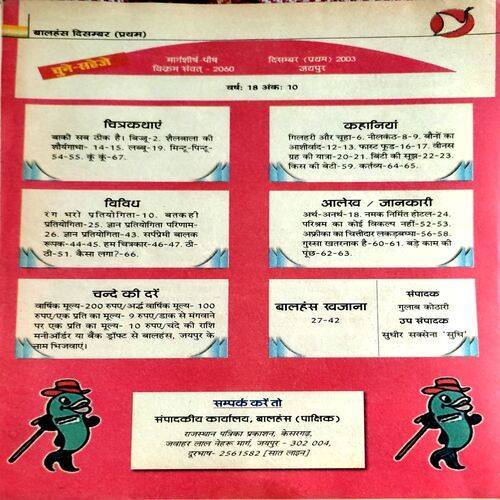 बालहंस दिसम्बर (प्रथम)
चुने-सहेजें
मार्गशीर्ष-पौष
विक्रम संवत् - 2060
दिसम्बर (प्रथम) 2003
जयपुर
वर्षः 18 अंकः 10
चित्रकथाएं
बाकी सब ठीक है। बिज्जू-2. शैलबाला की
शौर्यगाथा- 14-15. लब्बू-19. मिन्टू-पिन्टू-
54-55. कूं कूं-67.
कहानियां
गिलहरी और चूहा-6. नीलकंठ-8-9. बौनों का
आशीर्वाद-12-13. फास्ट फूड-16-17. वीनस
ग्रह की यात्रा-20-21. बिंटी की सूझ-22-23.
किस की बेटी-59. कर्तव्य-64-65.
विविध
रंग भरो प्रतियोगिता-10. बतकही
प्रतियोगिता-25. ज्ञान प्रतियोगिता परिणाम-
26. ज्ञान प्रतियोगिता-43. सर्पप्रेमी बालक
रूपक-44-45. हम चित्रकार-46-47. ठी-
ठी-51. कैसा लगा?-66.
आलेख / जानकारी
अर्थ-अनर्थ-18. नमक निर्मित होटल-24.
परिश्रम का कोई विकल्प नहीं-52-53.
अफ्रीका का चित्तीदार लकड़बग्घा-56-58.
गुस्सा खतरनाक है-60-61. बड़े काम की
पूंछ-62-63.
चन्दे की दरें
वार्षिक मूल्य-200 रुपए/अर्द्ध वार्षिक मूल्य- 100
रुपए/एक प्रति का मूल्य- 9 रुपए/डाक से मंगवाने
पर एक प्रति का मूल्य- 10 रुपए/चंदे की राशि
मनीऑर्डर या बैंक ड्राफ्ट से बालहंस, जयपुर के
नाम भिजवाएं।
बालहंस खजाना
27-42
संपादक
गुलाब कोठारी
उप संपादक
सुधीर सक्सेना 'सुधि'
सम्पर्क करें तो
संपादकीय कार्यालय, बालहंस (पाक्षिक)
राजस्थान पत्रिका प्रकाशन, केसरगढ़,
जवाहर लाल नेहरू मार्ग, जयपुर - 302 004,
दूरभाष- 2561582 [सात लाइन]